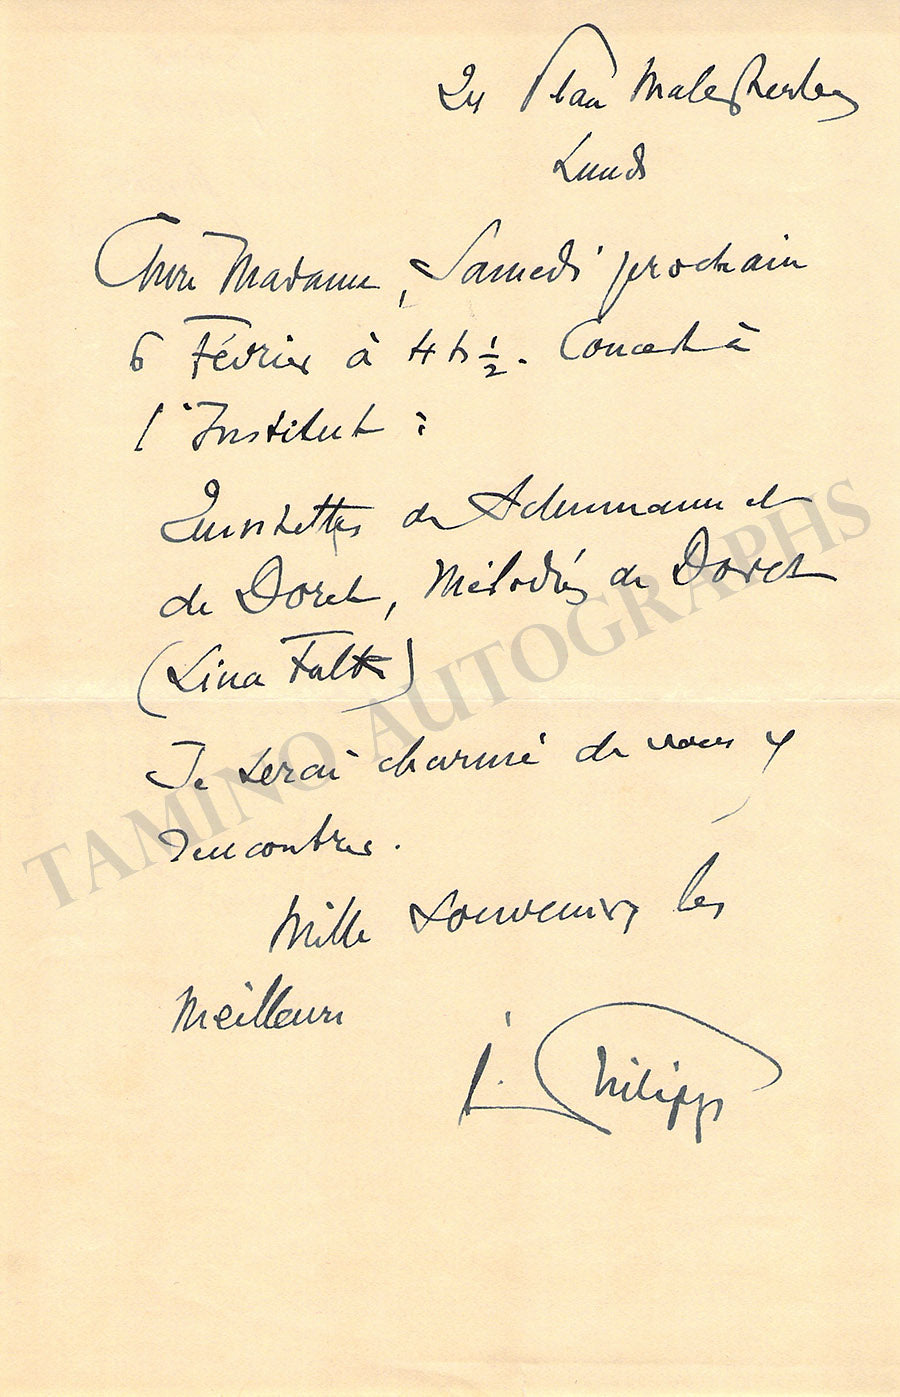 24 Place Malesherbes
Lundi
Chère Madame, Samedi prochain
6 Février à 4 h ½. Concert à
l'Institut :
Quintettes de Schumann et
de Doret, Mélodies de Doret
(Lina Falk)
Je serai charmé de vous y
rencontrer.
Mille souvenirs, les
meilleurs
I. Philipp
TAMINO AUTOGRAPHS